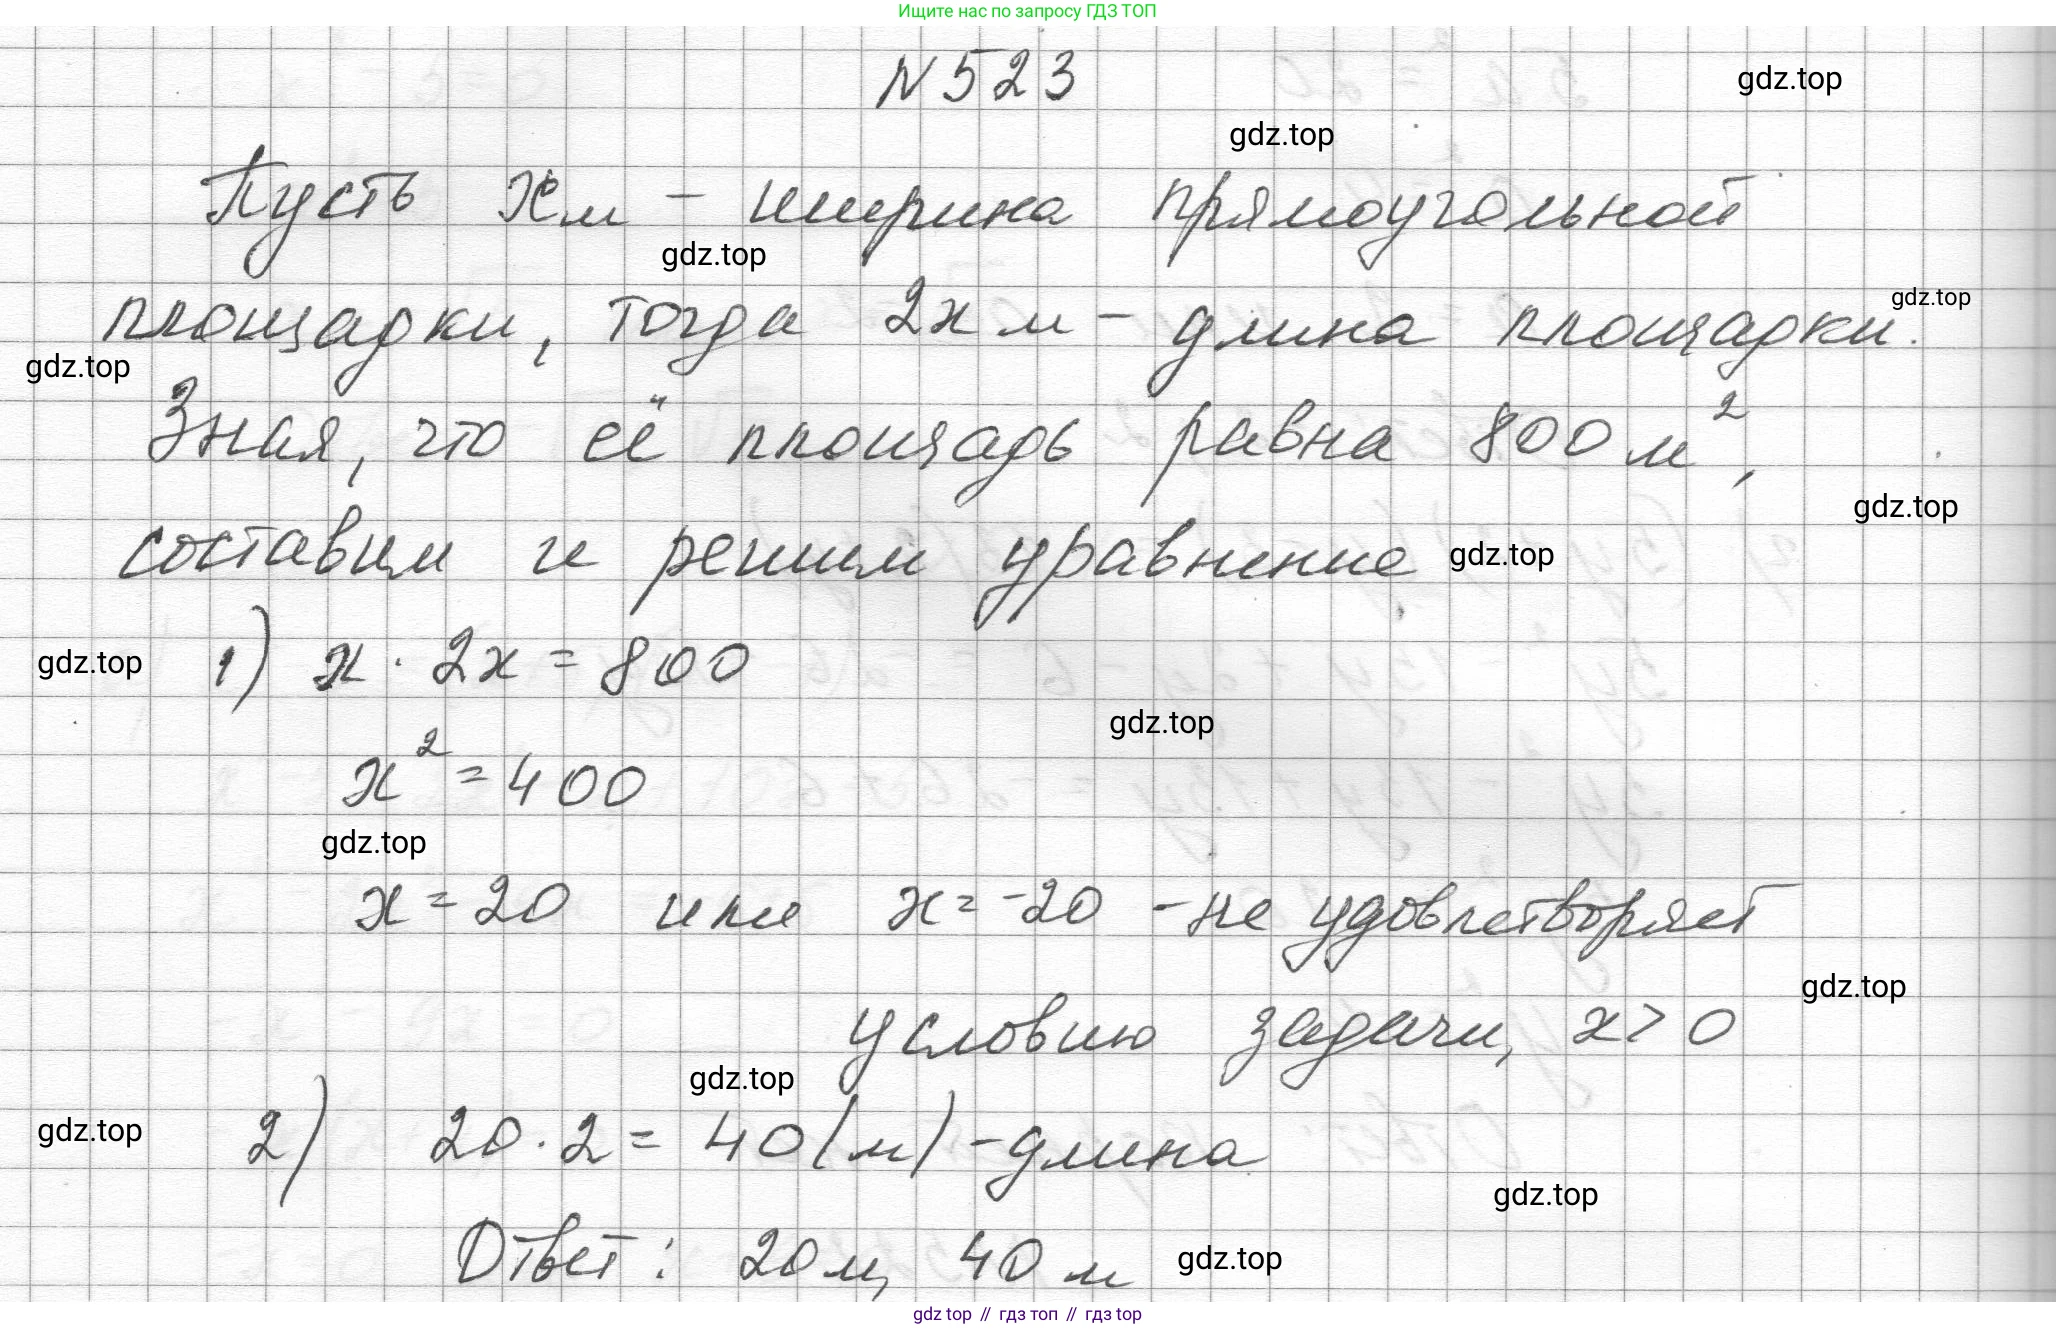 Ищите нас по запросу ГДЗ ТОП
N 523
gdz.top
gdz.top
Пусть x м - ширина прямоугольной
gdz.top
площадки, тогда 2x м - длина площадки.
gdz.top
gdz.top
Зная, что её площадь равна 800 м²,
gdz.top
составим и решим уравнение
gdz.top
gdz.top
1) x · 2x = 800
gdz.top
x² = 400
gdz.top
x = 20 или x = -20 - не удовлетворяет
gdz.top
условию задачи, x > 0
gdz.top
gdz.top
2) 20 · 2 = 40 (м) - длина
gdz.top
Ответ: 20 м, 40 м
gdz.top
gdz top // гдз топ // gdz top